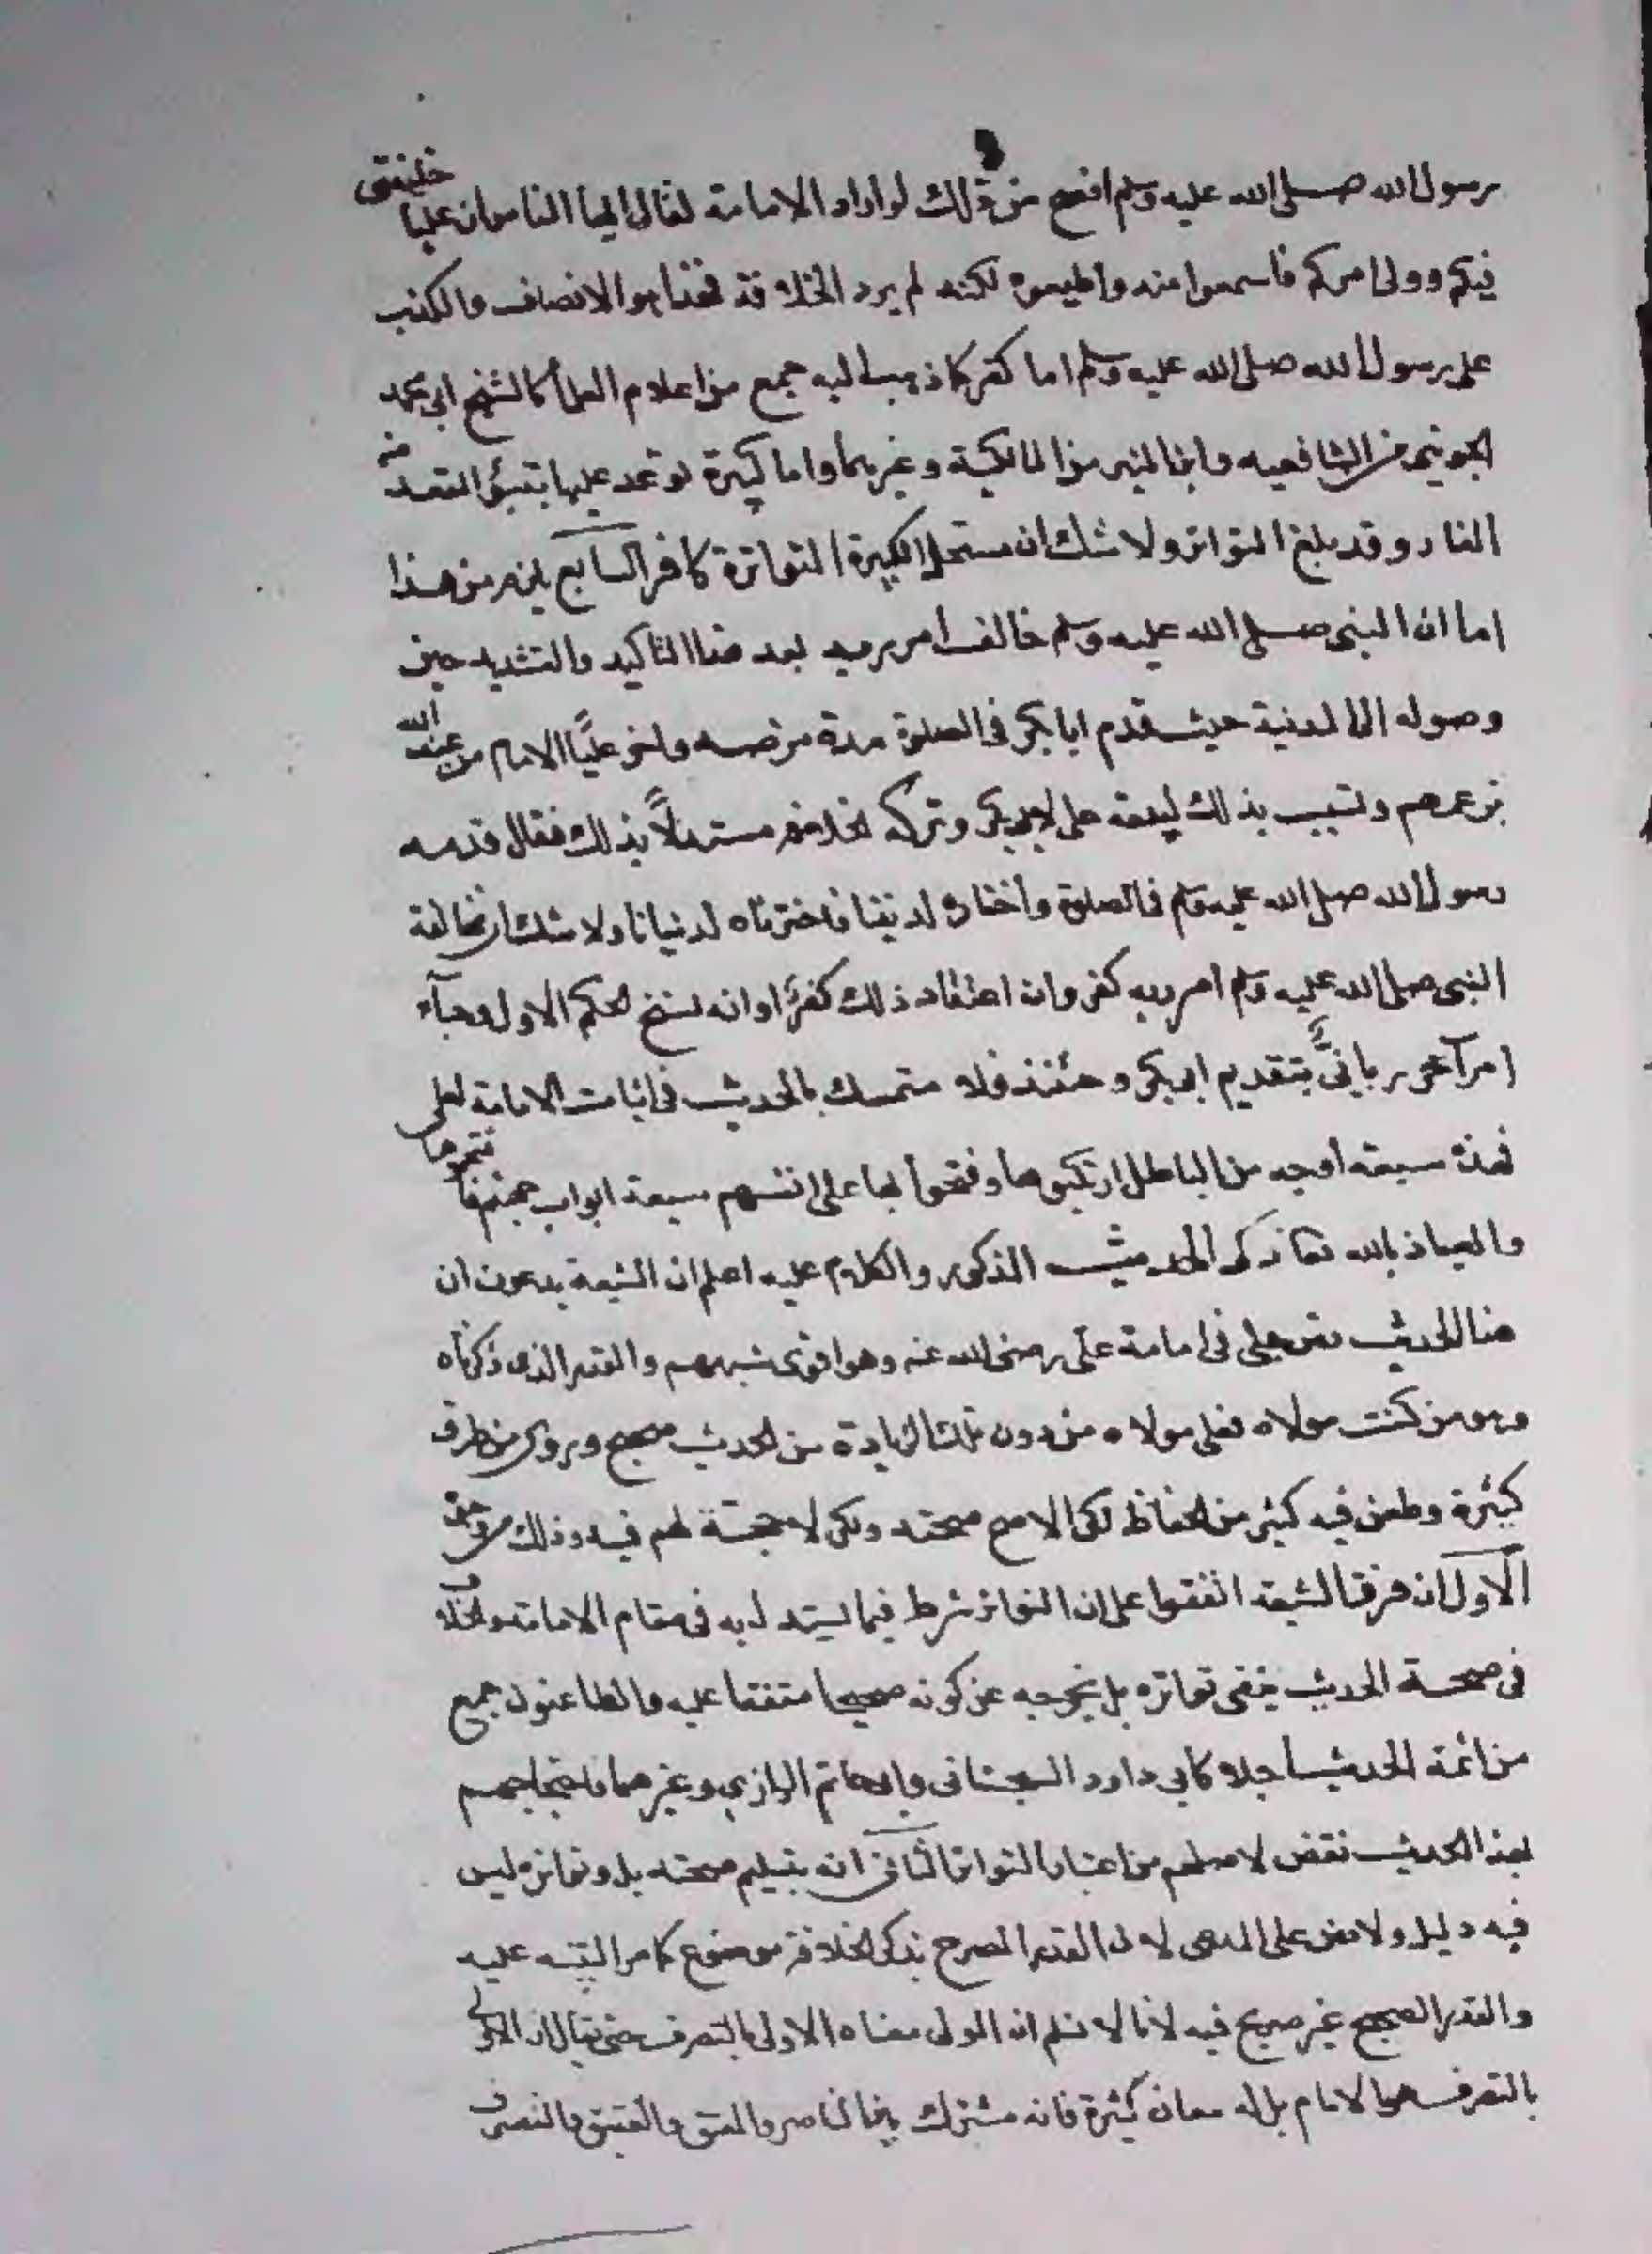 رسول الله صلى الله عليه وسلم افصح من ذلك لو اراد الامامة لقال ايها الناس ان عليا خليفتى
فيكم وولى امركم فاسمعوا منه واطيعوه لكنه لم يرد الخلافة فهذا هو الانصاف والكذب
على رسول الله صلى الله عليه وسلم اما كفر كما ذهب اليه جمع من اعلام العلماء كالشيخ ابى محمد
الجوينى من الشافعيه وابن المنير من المالكية وغيرهما واما كبيرة توعد عليها بتبوؤ المقعد من
النار وقد بلغ التواتر ولا شك ان مستحل الكبيرة المتواترة كافر السابع يلزم من هذا
اما ان النبى صلى الله عليه وسلم خالف امر ربه بعد هذا التاكيد والتشديد حين
وصوله الى المدينة حيث قدم ابا بكر فى الصلوة مدة مرضه واخر عليًّا الامام من عند الله
بزعمهم وتسبب بذلك لبيعة على لابى بكر وتركه الخلافة مستدلًّا بذلك فقال قدمه
رسول الله صلى الله عليه وسلم فى الصلوة واختاره لديننا فاخترناه لدنيانا ولا شك ان مخالفة
النبى صلى الله عليه وسلم امر ربه كفر وان اعتقاد ذلك كفرًا او انه نسخ الحكم الاول وجآء
امر آخر ربانىٌّ بتقديم ابى بكر وحئنذ فلا متمسك بالحديث فى اثبات الامامة لعلى
فهذه سبعة أوجه من الباطل ارتكبوها وفتحوا بها على انفسهم سبعة ابواب جهنم فاقتحموها
والعياذ بالله تعا ذكر الحديث المذكور والكلام عليه اعلم ان الشيعة يدعون ان
هذا الحديث نص جلى فى امامة على رضى الله عنه وهو اقوى شبههم والقدر الذى ذكرناه
وهو من كنت مولاه فعلى مولاه من دون تلك الزيادة من الحديث صحيح وروى من طرق
كثيرة وطعن فيه كثير من الحفاظ لكن الاصح صحته ولكن لا حجة لهم فيه وذلك من وجوه
الآول ان فرق الشيعة اتفقوا على ان التواتر شرط فيما يستدل به فى مقام الامامة والخلاف
فى صحة الحديث ينفى تواتره بل يخرجه عن كونه صحيحا متفقا عليه والطاعنون جمع
من ائمة الحديث أجلاء كابى داود السجستانى وابى حاتم الرازى وغيرهما فاحتجاجهم
بهذا الحديث نقض لاصلهم من اعتبار التواتر الثانى انه بتسليم صحته بل وتواتره ليس
فيه دليل ولا نص على المدعى لان القدر المصرح بذكر الخلافة موضوع كما مر التنبيه عليه
والقدر الصحيح غير صريح فيه لانا لا نسلم ان المولى معناه الاولى بالتصرف حتى يقال ان الاولى
بالتصرف هو الامام بل له معان كثيرة فانه مشترك بين الناصر والمعتق والعتيق والمتصرف